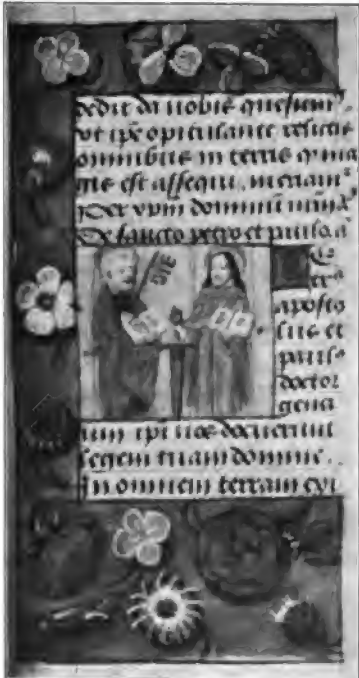 dedit da nobis quesum
vt ipe opitulante relictis
omnibus in terris
gis est assequi. meream
Per xpm dominū
De sancto petro et paulo. a
DIE
aposto
lus et
paulꝰ
doctor
genti
um ipi nos docuerunt
legem tuam domine.
In omnem terram exi